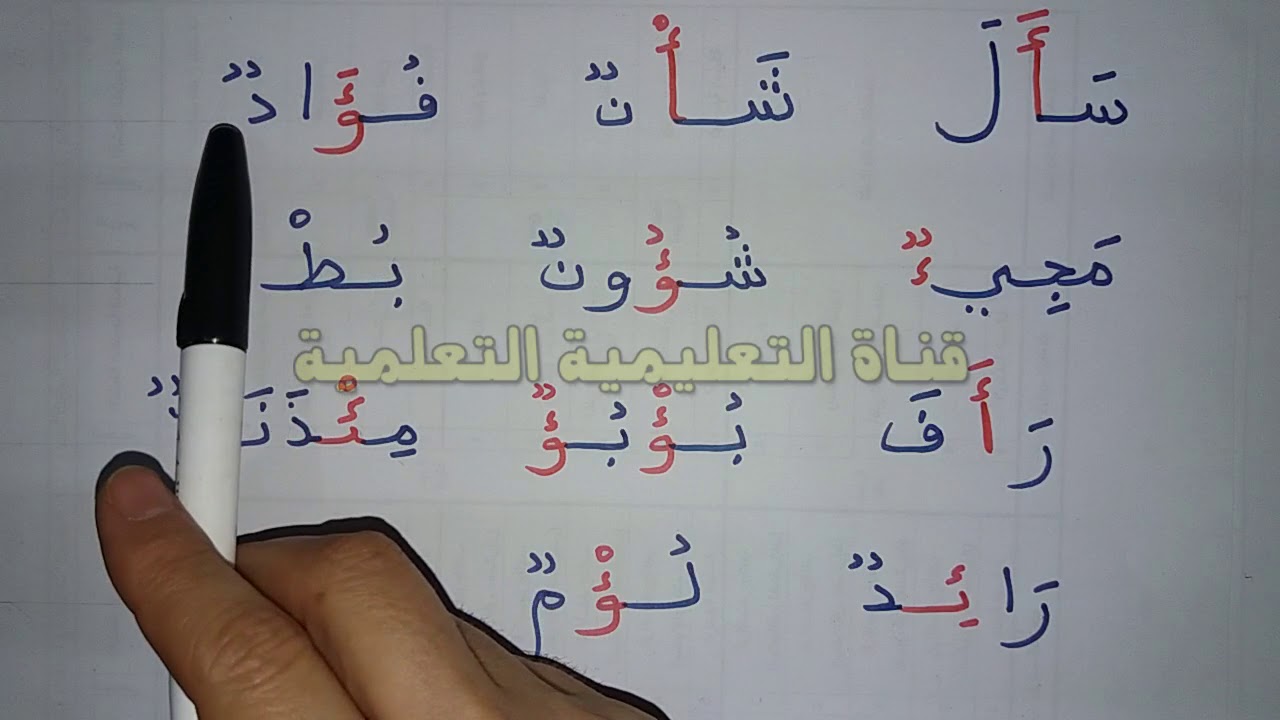 سَأَلَ شَأْنٌ فُؤَادٌ
مَجِيءٌ شُؤُونٌ بُطْ
قناة التعليمية التعلمية
رَأَفَ بُؤْبُؤٌ
رَائِدٌ لُؤْمٌ